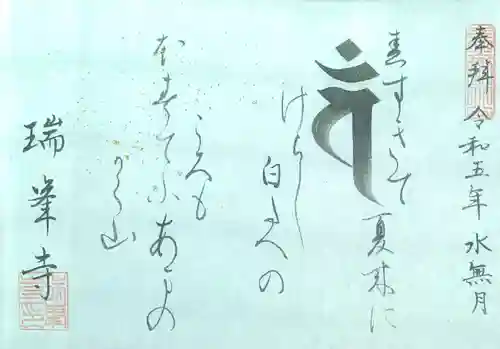 奉拝 令和五年 水無月
春すきて 夏来に
けらし 白たへの
ころも
ほすてふ あまの
かく山
瑞峯寺